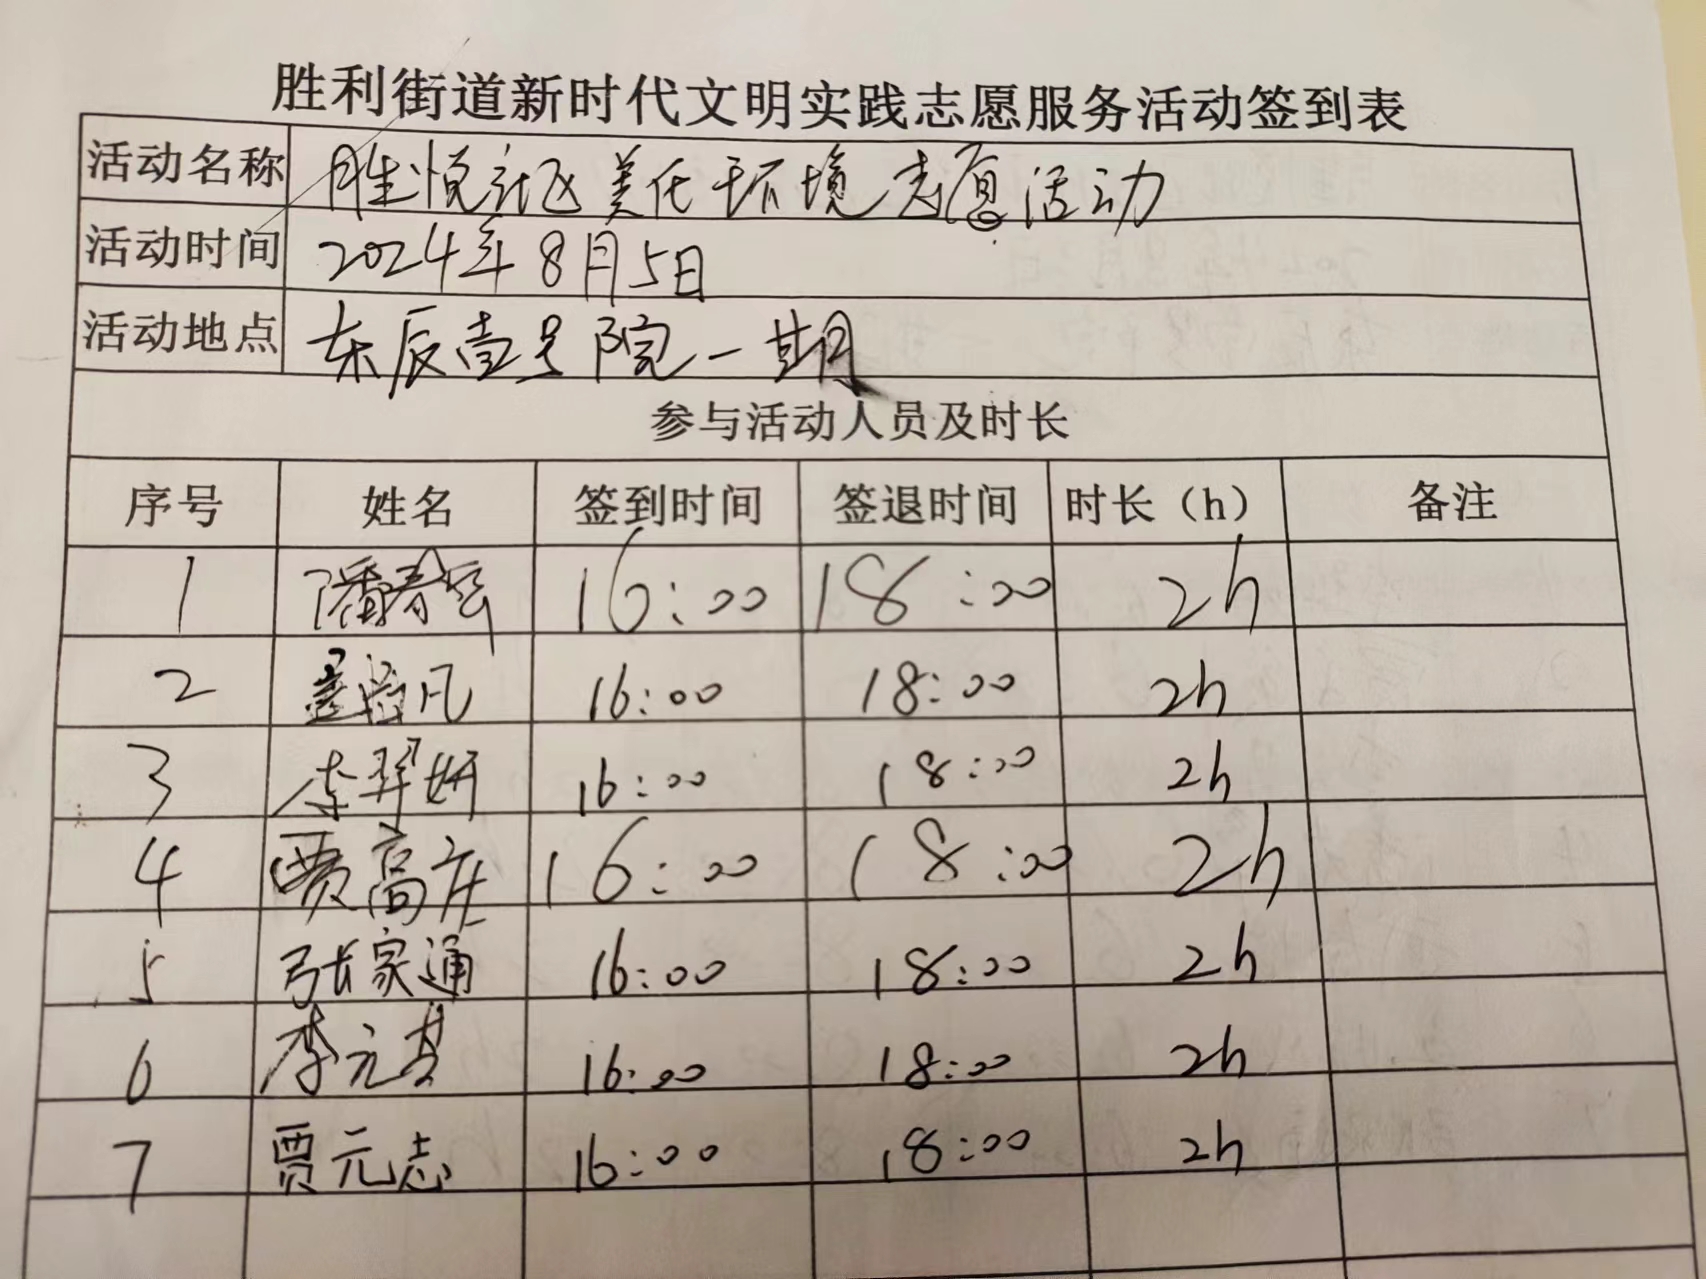 胜利街道新时代文明实践志愿服务活动签到表
活动名称 胜悦社区美化环境志愿活动
活动时间 2024年8月5日
活动地点 东辰壹号院一期
参与活动人员及时长
序号 姓名 签到时间 签退时间 时长（h） 备注
1 潘春云 16:00 18:00 2h
2 凡 16:00 18:00 2h
3 李羿妍 16:00 18:00 2h
4 贾高庆 16:00 18:00 2h
5 张家通 16:00 18:00 2h
6 李元其 16:00 18:00 2h
7 贾元志 16:00 18:00 2h